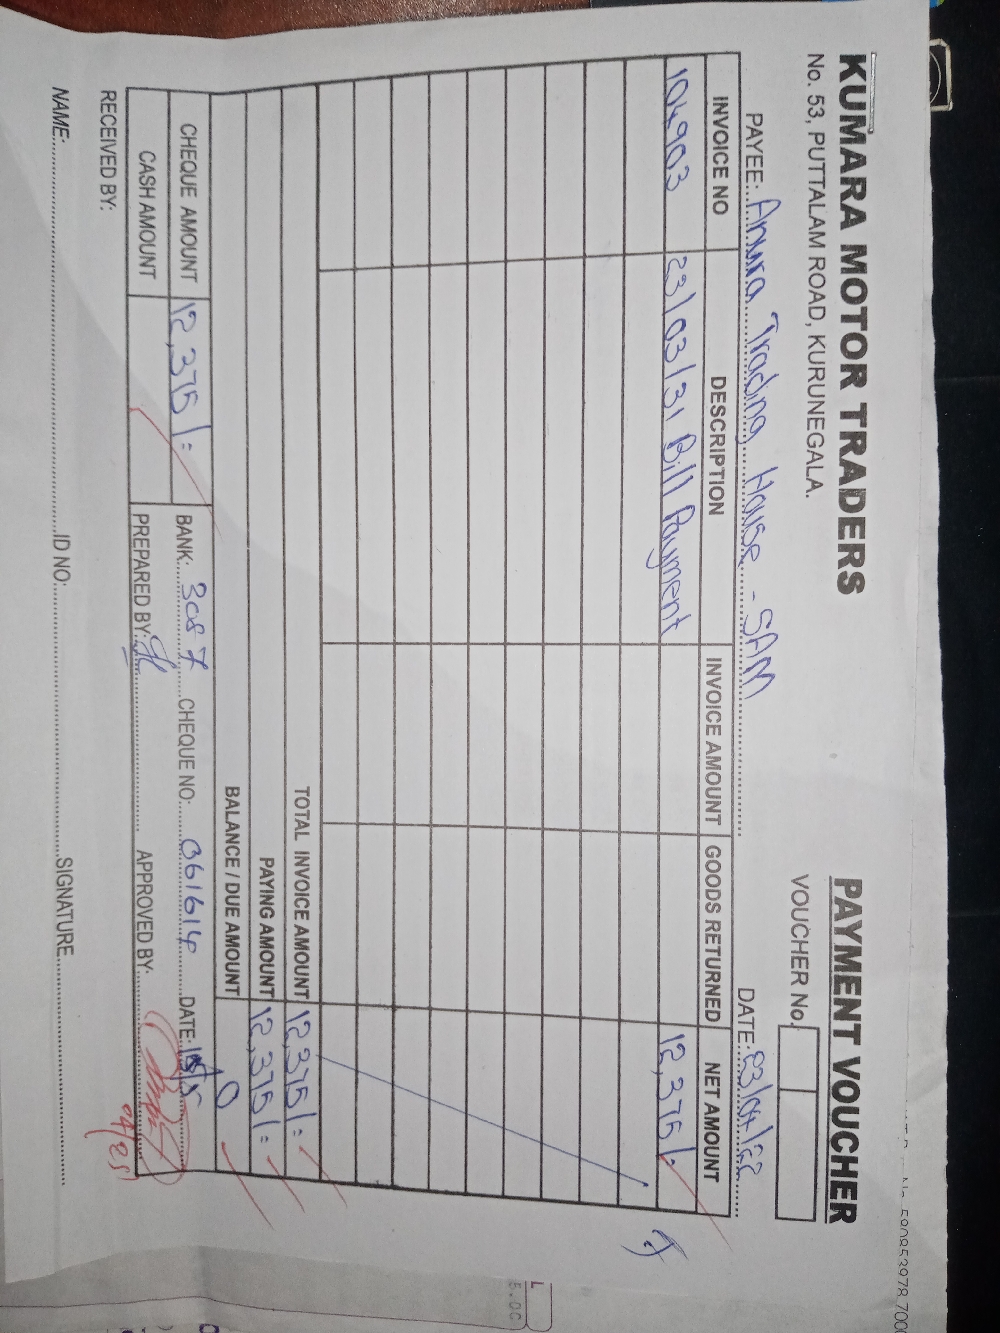 KUMARA MOTOR TRADERS
No. 53, PUTTALAM ROAD, KURUNEGALA.
PAYMENT VOUCHER
VOUCHER No.
PAYEE: Anura Trading House - SAM DATE: 23/04/22
INVOICE NO DESCRIPTION INVOICE AMOUNT GOODS RETURNED NET AMOUNT
104903 23/03/31 Bill Payment 12,375/-
TOTAL INVOICE AMOUNT 12,375/=
PAYING AMOUNT 12,375/=
BALANCE / DUE AMOUNT 0
CHEQUE AMOUNT 12,375/= BANK: 3087 CHEQUE NO: 361614 DATE: 15/5
CASH AMOUNT PREPARED BY: APPROVED BY:
04/25
RECEIVED BY:
NAME: ID NO: SIGNATURE
5.00